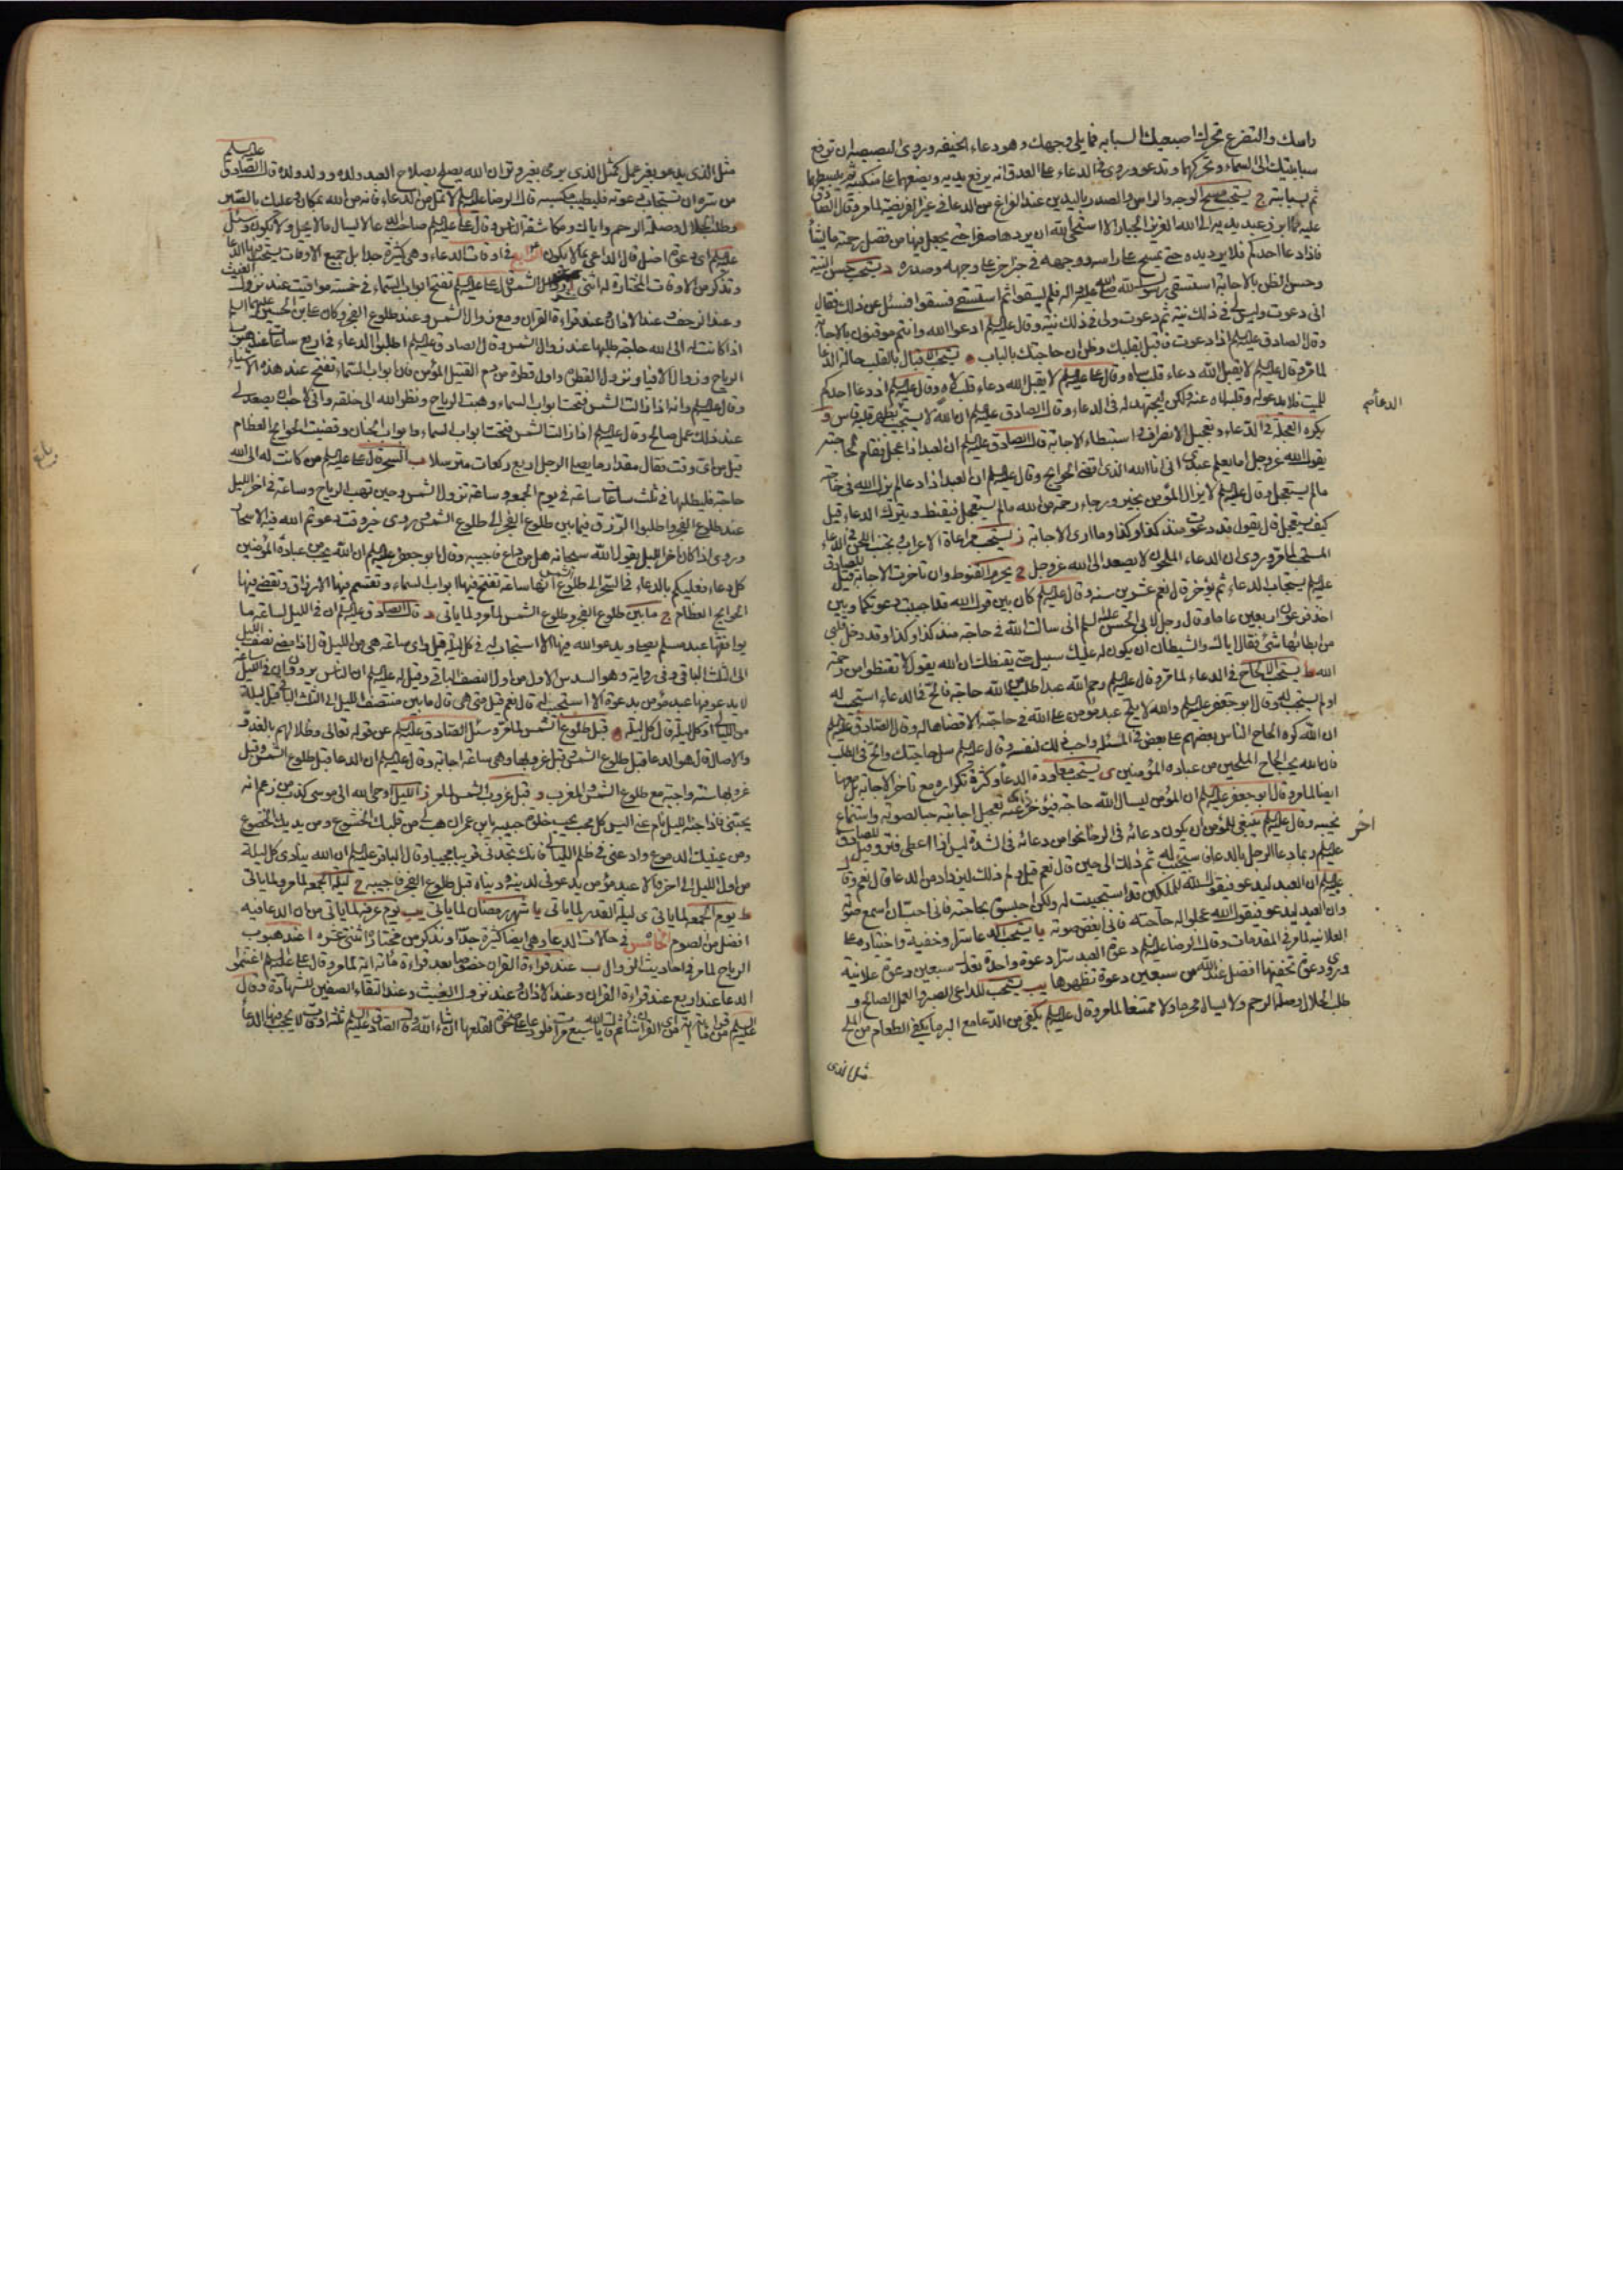 راسك والتضرع تحرك اصبعيك السبابه مما يلي وجهك وهو دعاء الخيفه وروى ان البصبصه ان ترفع
سبابتيك الى السماء وتحركهما وتدعو وروى في الدعاء على العدو انه يرفع يديه ويضعهما على منكبيه ثم يبسطهما
ثم بسبابته ج يستحب مسح الوجه والراس والصدر باليدين عند الفراغ من الدعا في غير الفريضة لما مر وقال الصادق
عليه ما ابرز عبد يديه الى الله العزيز الجبار الا استحيى الله ان يردها صفرا حتى يجعل فيها من فضل رحمته ما يشأ
فاذا دعا احدكم فلا يرد يده حتى يمسح على راسه ووجهه وفي خبر اخر على وجهه وصدره د يستحب حسن النية
وحسن الظن بالاجابة استسقى رسول الله صلى الله عليه واله فلم يسقوا ثم استسقى فسقوا فسئل عن ذلك فقال
انى دعوت وليس لي في ذلك نية ثم دعوت ولى في ذلك نية وقال عليه السلم ادعوا الله وانتم موقنون بالاجابة
وقال الصادق عليه السلم اذا دعوت فاقبل بقلبك وظن ان حاجتك بالباب ه يستحب الاقبال بالقلب حالة الدعا
لما مر وقال عليه السلم لا يقبل الله دعاء قلب ساه وقال على عليه السلم لا يقبل الله دعاء قلب لاه وقال عليه السلم اذ دعا احدكم
للميت فلا يدعو له وقلبه لاه عنه ولكن ليجتهد له في الدعاء وقال الصادق عليه السلم ان الله لا يستجيب بظهر قلب قاس و
يكره العجلة في الدعاء وتعجيل الانصراف واستبطاء الاجابة قال الصادق عليه السلم ان العبد اذا عجل فقام لحاجته
يقول الله عز وجل اما يعلم عبدى انى انا الله الذى اقضى الحوايج وقال عليه السلم ان العبد اذا دعا لم يزل الله في حاجته
ما لم يستعجل وقال عليه السلم لا يزال المؤمن بخير ورجاء رحمة من الله ما لم يستعجل فيقنط ويترك الدعاء قيل
كيف يستعجل قال يقول قد دعوت منذ كذا وكذا وما ارى الاجابة ز يستحب مراعاة الاعراب وتجنب اللحن في الدعاء
المستحب لما مر وروى ان الدعاء الملحون لا يصعد الى الله عز وجل ح يحرم القنوط وان تاخرت الاجابة قيل للصادق
عليه السلم يستجاب الدعاء ثم يؤخر قال نعم عشرين سنه وقال عليه السلم كان بين قول الله قد اجيبت دعوتكما وبين
اخذ فرعون اربعين عاما وقال رجل لابي الحسن عليه السلم انى سالت الله في حاجة منذ كذا وكذا وقد دخل قلبي
من ابطائها شئ فقال اياك والشيطان ان يكون له عليك سبيل حتى يقنطك ان الله يقول لا تقنطوا من رحمة
الله ط يستحب الالحاح في الدعاء لما مر وقال عليه السلم رحم الله عبدا طلب من الله حاجة فالح في الدعاء استجيب له
او لم يستجب له وقال ابو جعفر عليه السلم والله لا يلح عبد مؤمن على الله في حاجته الا قضاها له وقال الصادق عليه السلم
ان الله كره الحاح الناس بعضهم على بعض في المسئلة واحب ذلك لنفسه وقال عليه السلم سل حاجتك والح في الطلب
فان الله يحب الحاح الملحين من عباده المؤمنين ى يستحب معاودة الدعاء وكثرة تكراره مع تاخر الاجابة بل معها
ايضا لما مر وقال ابو جعفر عليه السلم ان المؤمن ليسال الله حاجة فيؤخر عنه تعجيل اجابته حبا لصوته واستماع
نحيبه وقال عليه السلم ينبغي للمؤمن ان يكون دعائه في الرخا نحوا من دعائه في الشدة ليس اذا اعطى فتر وقيل للصادق
عليه السلم ربما دعا الرجل بالدعاء فاستجيب له ثم ذلك الى حين قال نعم قيل ولم ذلك ليزداد من الدعا قال نعم وقال
عليه السلم ان العبد ليدعو فيقول الله للملكين قد استجبت له ولكن احبسوه بحاجته فانى احب ان اسمع صوته
وان العبد ليدعو فيقول الله عجلوا له حاجته فانى ابغض صوته يا يستحب الدعا سرا وخفية واختياره على
العلانيه لما مر في المقدمات وقال الرضا عليه السلم دعوة العبد سرا دعوة واحدة تعدل سبعين دعوة علانية
وروى دعوة تخفيها افضل عند الله من سبعين دعوة تظهرها يب يستحب للداعى الصبر والعمل الصالح و
طلب الحلال وصلة الرحم ولا يسال محرما ولا ممتنعا لما مر وقال عليه السلم يكفى من الدعا مع البر ما يكفى الطعام من الملح
مثل الذى
الدعا صح
اخر
مثل الذى يدعو بغير عمل كمثل الذى يرمى بغير وتر ان الله يصلح بصلاح العبد ولده وولد ولده وقال الصادق عليه السلم
من سره ان تستجاب دعوته فليطيب كسبه قال الرضا عليه السلم لا تمل من الدعاء فانه من الله بمكان وعليك بالصبر
وطلب الحلال وصلة الرحم واياك ومكاشفة الناس وقال على عليه السلم صاحب الدعاء لا يسال ما لا يحل ولا يكون وسئل
عليه السلم اى دعوة اضل قال الداعى بما لا يكون الرابع في اوقات الدعاء وهى كثيرة جدا بل جميع الاوقات يستحب فيها الدعا
ونذكر من الاوقات المختارة له اثنى عشر ا زوال الشمس قال على عليه السلم تفتح ابواب السماء في خمسة مواقيت عند نزول الغيث
وعند الزحف وعند الاذان وعند قراءة القران ومع زوال الشمس وعند طلوع الفجر وكان على بن الحسين عليه السلم
اذا كانت له الى الله حاجة طلبها عند زوال الشمس وقال الصادق عليه السلم اطلبوا الدعاء في اربع ساعات عند هبوب
الرياح وزوال الافياء ونزول القطر واول قطرة من دم القتيل المؤمن فان ابواب السماء تفتح عند هذه الاشياء
وقال عليه السلم وانه اذا زالت الشمس فتحت ابواب السماء وهبت الرياح ونظر الله الى خلقه وانى لاحب ان يصعد لي
عند ذلك عمل صالح وقال عليه السلم اذا زالت الشمس فتحت ابواب السماء وابواب الجنان وقضيت الحوايج العظام
قيل من اى وقت فقال مقدار ما يصلى الرجل اربع ركعات مترسلا ب السحر قال على عليه السلم من كانت له الى الله
حاجة فليطلبها في ثلث ساعات ساعة في يوم الجمعه وساعة تزول الشمس وحين تهب الرياح وساعة في اخر الليل
عند طلوع الفجر واطلبوا الرزق فيما بين طلوع الفجر الى طلوع الشمس وروى خير وقت دعوتم الله فيه الاسحار
وروى اذا كان اخر الليل يقول الله سبحانه هل من داع فاجيبه وقال ابو جعفر عليه السلم ان الله يحب من عباده المؤمنين
كل دعاء فعليكم بالدعاء في السحر الى طلوع الشمس فانها ساعة تفتح فيها ابواب السماء وتقسم فيها الارزاق وتقضى فيها
الحوايج العظام ج ما بين طلوع الفجر وطلوع الشمس لما مر ولما ياتى د قال الصادق عليه السلم ان في الليل لساعة ما
يوافقها عبد مسلم يصلى ويدعو الله فيها الا استجاب له في كل ليلة قيل واى ساعة هى من الليل قال اذا مضى نصف الليل
الى الثلث الباقى وفى رواية وهو السدس الاول من اول النصف الباقى وقيل له عليه السلم ان الناس يروون ان في الليل ساعة
لا يدعو فيها عبد مؤمن بدعوة الا استجيب له قال نعم قيل متى هى قال ما بين منتصف الليل الى الثلث الباقى قيل ليلة
من الليالى او كل ليلة قال كل ليلة ه قبل طلوع الشمس لما مر وسئل الصادق عليه السلم عن قوله تعالى وظلالهم بالغدو
والاصال قال هو الدعا قبل طلوع الشمس وقبل غروبها وهى ساعة اجابة وقال عليه السلم ان الدعا قبل طلوع الشمس وقبل
غروبها سنة واجبة مع طلوع الشمس والمغرب و قبل غروب الشمس لما مر ز الليل اوحى الله الى موسى كذب من زعم انه
يحبنى فاذا جنه الليل نام عنى اليس كل محب يحب خلوة حبيبه يا بن عمران هب لى من قلبك الخشوع ومن بدنك الخضوع
ومن عينيك الدموع وادعنى في ظلم الليالى فانك تجدنى قريبا مجيبا وقال الباقر عليه السلم ان الله ينادى كل ليلة
من اول الليل الى اخره الا عبد مؤمن يدعونى لدينه ودنياه قبل طلوع الفجر فاجيبه ح ليلة الجمعه لما مر ولما ياتى
ط يوم الجمعه لما ياتى ى ليلة القدر لما ياتى يا شهر رمضان لما ياتى يب يوم عرفه لما ياتى من ان الدعا فيه
افضل من الصوم الخامس في حالات الدعا وهى ايضا كثيرة جدا ونذكر من مختارها اثنى عشره ا عند هبوب
الرياح لما مر في احاديث الزوال ب عند قراءة القران خصوصا بعد قراءة مائة اية لما مر وقال على عليه السلم اغتنموا
الدعا عند اربع عند قراءة القران وعند الاذان وعند نزول الغيث وعند التقاء الصفين للشهادة وقال
عليه السلم من قرأ مائة اية من اى القران شاء ثم قال يا الله سبع مرات فلو دعا على صخرة لقلعها ان شاء الله وقال الصادق عليه السلم ثلثة اوقات لا يحجب فيها الدعا